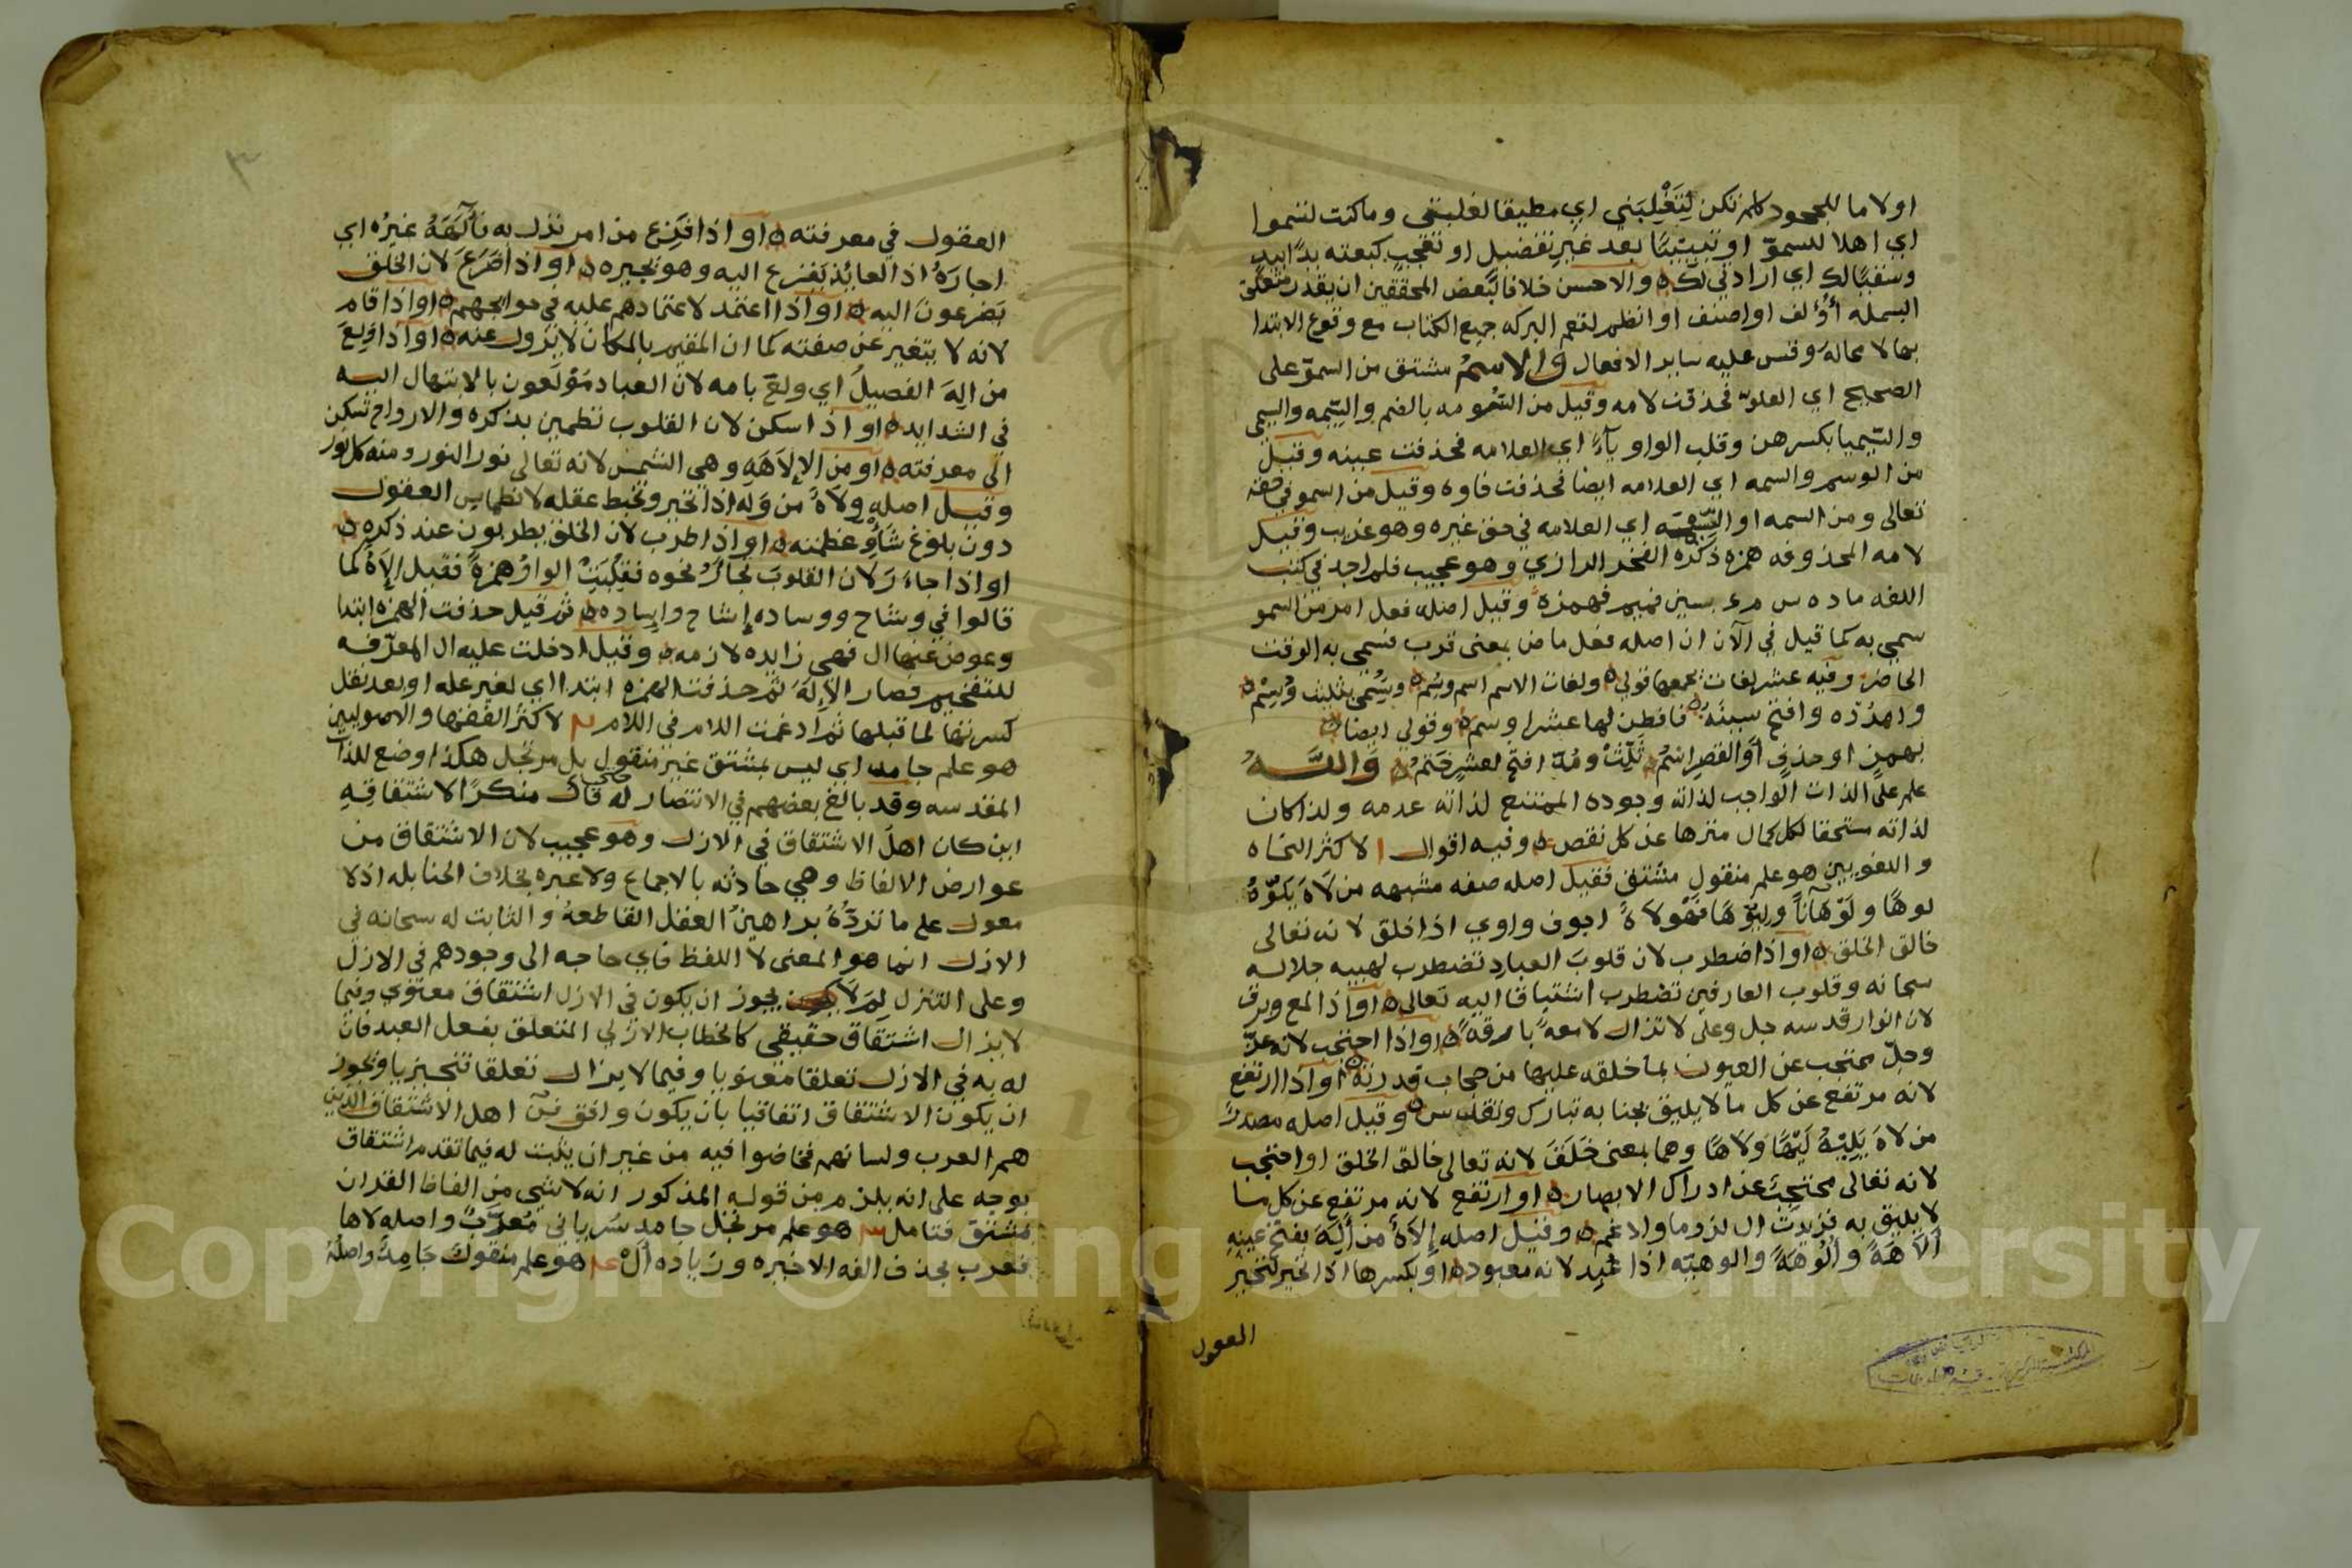 اولاما للجحود كلم تكن لِتَغْلِبَني اي مطيقا لغلبتي وما كنت لتسموا
اي اهلا للسموّ او تبيينًا بعد غير تفضيل او تعجب كبعته بدًا بيد
وسقيًا لك اي ارادتي لك والاحسن خلافا لبعض المحققين ان يقدر متعلق
البسمله أؤلف او اصنف او انظم لتعم البركه جميع الكتاب مع وقوع الابتدا
بها لا محالة وقس عليه ساير الافعال والاسمُ مشتق من السموّ على
الصحيح اي العلوّ فحذفت لامه وقيل من السُّومه بالضم والسِّيمه والسيمى
والسِّيميا بكسرهن وقلب الواو ياءً اي العلامه فحذفت عينه وقيل
من الوسم والسمه اي العلامه ايضا فحذفت فاوه وقيل من السمو في حقه
تعالى ومن السمه او السِّيمَة اي العلامه في حق غيره وهو غريب وقيل
لامه المحذوفه همزه ذكره الفخر الرازي وهو عجيب فلم اجد في كتب
اللغه ماده س م ء بسين فميم فهمزة وقيل اصله فعل امر من السمو
سمي به كما قيل في الآن ان اصله فعل ماض بمعنى قرب فسمي به الوقت
الحاضر وفيه عشر لغات يجمعها قولي ولغات الاسم اسم وسم وسُمى بثليث وُسِمْ
وامدُدْه وافتح سينَهُ فافطن لها عشرا وسم وقولي ايضا
بهمزٍ او حذفٍ او القصرِ اسمُ ثلّثْ ومُدّ افتح لعشرٍ خَتم وَاللَّـهُ
علم على الذات الواجب لذاته وجوده الممتنع لذاته عدمه ولذا كان
لذاته مستحقا لكل كمال منزها عن كل نقص وفيه اقوال ١ لاكثر النحاه
واللغويين هو علم منقول مشتق فقيل اصله صفه مشبهه من لَاهَ يَلوُهُ
لوهًا ولَوَهَانًا ولِيَّهًا فهْولاهٌ اجوف واوي اذا خلق لانه تعالى
خالق الخلق او اذا اضطرب لان قلوب العباد تضطرب لهيبه جلاله
سبحانه وقلوب العارفين تضطرب اشتياقا اليه تعالى او اذا لمع وبرق
لان انوار قدسه جل وعلى لا تزال لامعهً بارقهً او اذا احتجب لانه عزّ
وجلّ محتجب عن العيون بما خلقه عليها من حجاب قدرته او اذا ارتفع
لانه مرتفع عن كل ما لا يليق بجنابه تبارك وتقدس وقيل اصله مصدر
من لاهَ يَلِيْهُ لَيْهًا وَلَاهًا وهما بمعنى خَلَقَ لانه تعالى خالق الخلق او احتجب
لانه تعالى محتجِبٌ عن ادراك الابصار او ارتفع لانه مرتفع عن كل ما
لا يليق به فزيدت ال لزوما وادغم وقيل اصله إِلَاهٌ من أَلَهَ بفتح عينِهِ
أَلَاهَةً وأُلُوهَةً والوهيّه اذا عُبِد لانه معبود او بكسرها اذا تحير لتحيرُ
العقول
العقول في معرفته او اذا فَزِع من امر نزل به فألَهَهُ غيرُه اي
اجارَهُ اذ العائذ يفزع اليه وهو يجيره او اذا ضَرَعَ لان الخلق
يَضرعون اليه او اذا اعتمد لاعتمادهم عليه في حوايجهم او اذا قام
لانه لا يتغير عن صفته كما ان المقيم بالمكان لا يزول عنه او اذا وَلِعَ
من اَلِهَ الفصيلُ اي ولع بامه لان العباد مَولَعون بالابتهال اليه
في الشدايد او اذا سكن لان القلوب تطمين بذكره والارواح تسكن
الى معرفته او من الإلَاهَةِ وهي الشمس لانه تعالى نور النور ومنه كل نور
وقيل اصله وِلَاهٌ من وَلِه اذا تحير وتخبط عقله لانطماس العقول
دون بلوغ شَأْوِ عظمته او اذا طرب لان الخلق يطربون عند ذكره
او اذا جاءَ رَ لان القلوبَ تجأَرُ نحوه فقُلِبَتْ الواوُ همزةً فقيل إلَاهٌ كما
قالوا في وشاح ووساده إشاح وإساده ثم قيل حذفت الهمزه ابتدا
وعوض عنها ال فهي زايده لازمه وقيل ادخلت عليه ال المعرّفه
للتفخيم فصار الإلَهَ ثم حذفت الهمزه ابتدا اي لغير عله او بعد نقل
كسرتها لما قبلها ثم ادغمت اللام في اللام ٢ لاكثر الفقها والاصوليين
هو علم جامد اي ليس بمشتق غير منقول بل مرتجل هكذا وضع للذات
المقدسه وقد بالغ بعضهم في الانتصار له حتى قال منكرًا لاشتقاقِهِ
اين كان اهلُ الاشتقاق في الازل وهو عجيب لان الاشتقاق من
عوارض الالفاظ وهي حادثه بالاجماع ولا عبره بخلاف الحنابله اذ لا
معول على ما تردُّهُ براهينُ العقل القاطعهُ والثابت له سبحانه في
الازل انما هو المعنى لا اللفظ فاي حاجه الى وجودهم في الازل
وعلى التنزل لِمَ لا يجوز ان يكون في الازل اشتقاق معنوي وفيما
لا يزال اشتقاق حقيقي كالخطاب الازلي المتعلق بفعل العبد فان
له به في الازل تعلقا معنويا وفيما لا يزال تعلقا تنجيزيا ويجوز
ان يكون الاشتقاق اتفاقيا بان يكون وافق فنّ اهل الاشتقاق الذين
هم العرب ولسانهم فخاضوا فيه من غير ان يثبت له فيما تقدم اشتقاق
بوجه على انه يلزم من قوله المذكور انه لا شي من الفاظ القران
مشتق فتامل ٣ هو علم مرتجل جامد سُرياني مُعرّبٌ واصله لاها
فعرب بحذف الفه الاخيره وزياده ألْ ٤ هو علم منقولٌ جَامِدٌ واصلُهُ